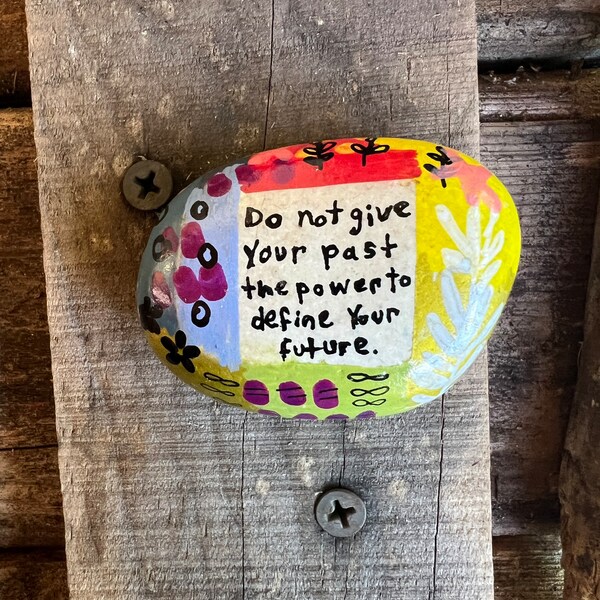 Do not give
Your past
the power to
define Your
future.